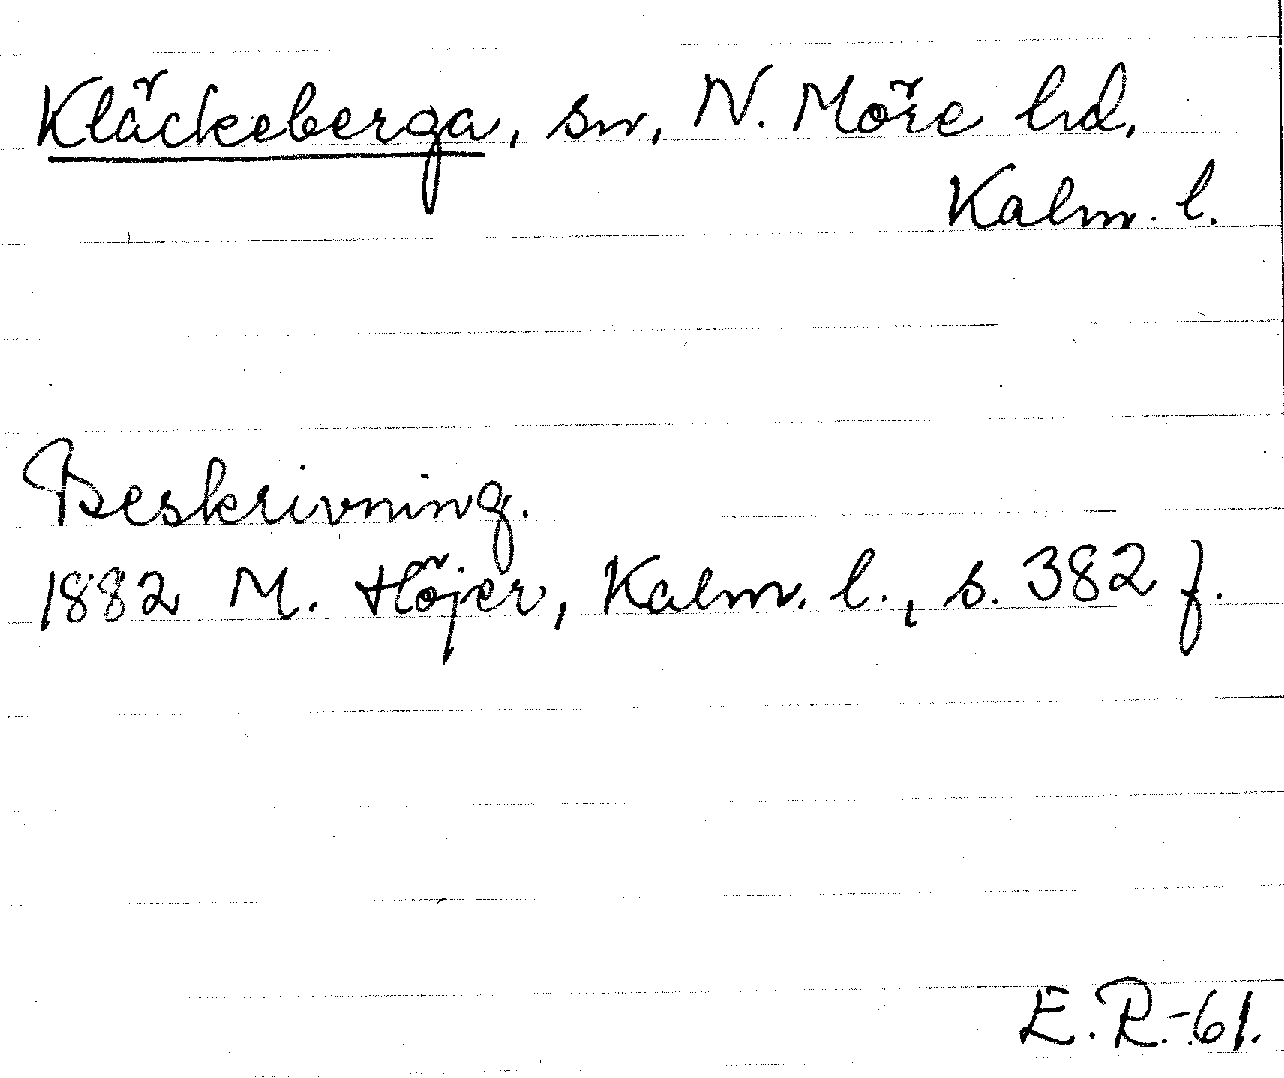 Kläckeberga, sn, N. Möre hd,
Kalm. l.
Beskrivning.
1882 M. Höjer, Kalm. l., s. 382 f.
E.R.-61.